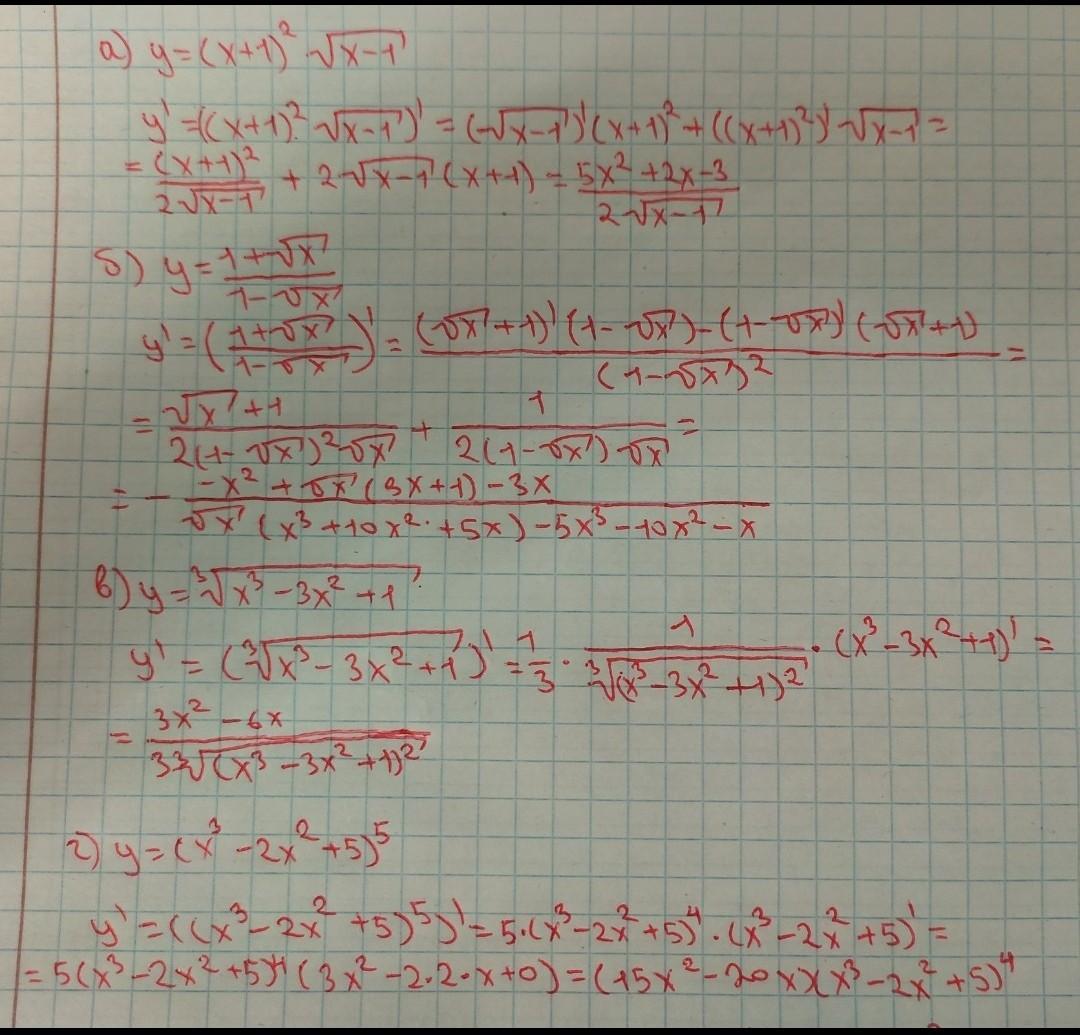 а) y=(x+1)²·√(x-1)
y'=((x+1)²·√(x-1))'=(√(x-1))'(x+1)²+((x+1)²)'√(x-1)=
=(x+1)²/(2√(x-1)) + 2√(x-1)(x+1)=(5x²+2x-3)/(2√(x-1))
б) y=(1+√x)/(1-√x)
y'=((1+√x)/(1-√x))'=((√x+1)'(1-√x)-(1-√x)'(√x+1))/(1-√x)²=
=(√x+1)/(2(1-√x)²√x) + 1/(2(1-√x)√x)=
=-(-x²+√x(3x+1)-3x)/(√x(x³+10x²+5x)-5x³-10x²-x)
в) y=∛(x³-3x²+1)
y'=(∛(x³-3x²+1))'=1/3·1/∛((x³-3x²+1)²)·(x³-3x²+1)'=
=(3x²-6x)/(3∛((x³-3x²+1)²))
г) y=(x³-2x²+5)⁵
y'=((x³-2x²+5)⁵)'=5·(x³-2x²+5)⁴·(x³-2x²+5)'=
=5(x³-2x²+5)⁴(3x²-2·2·x+0)=(15x²-20x)(x³-2x²+5)⁴